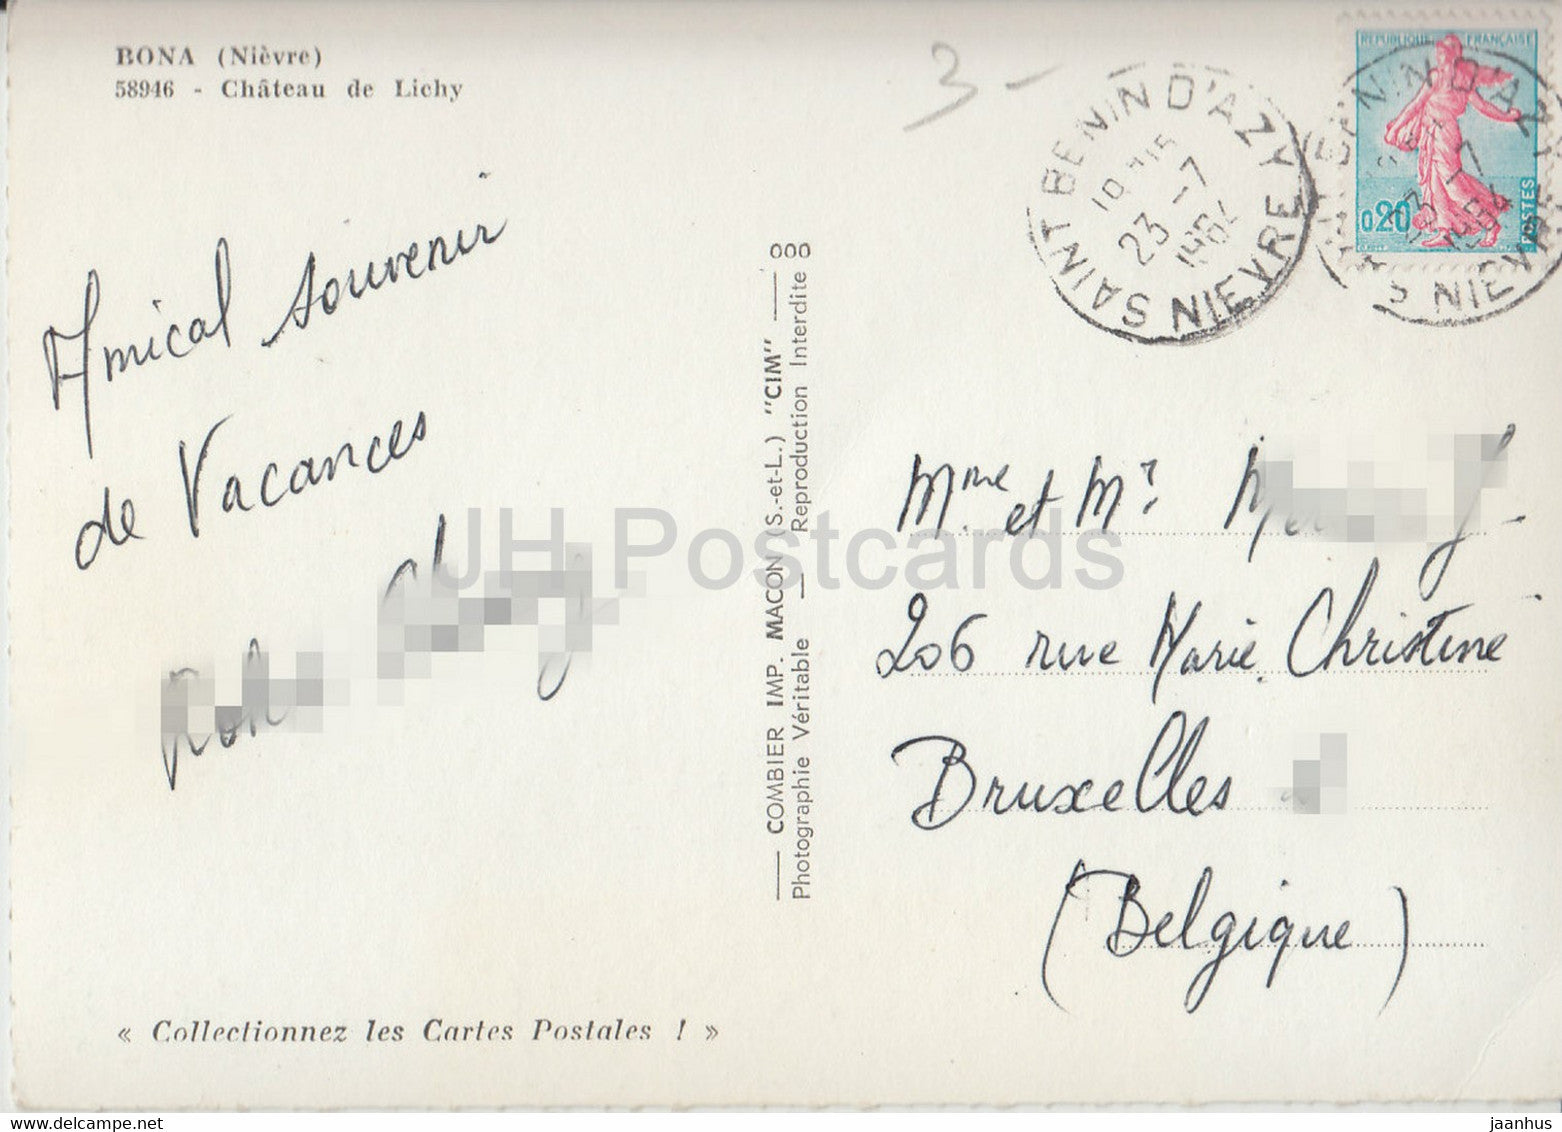 BONA (Nièvre)
58946 - Château de Lichy
3 -
SAINT BENIN D'AZY NIEVRE
23 -7
1964
REPUBLIQUE FRANÇAISE
0,20
POSTES
Amical souvenir
de Vacances
COMBIER IMP. MACON (S.-et-L.) "CIM"
Photographie Véritable — Reproduction Interdite
000
JH Postcards
Mme et Mr
206 rue Marie Christine
Bruxelles
(Belgique)
« Collectionnez les Cartes Postales ! »
jaanhus